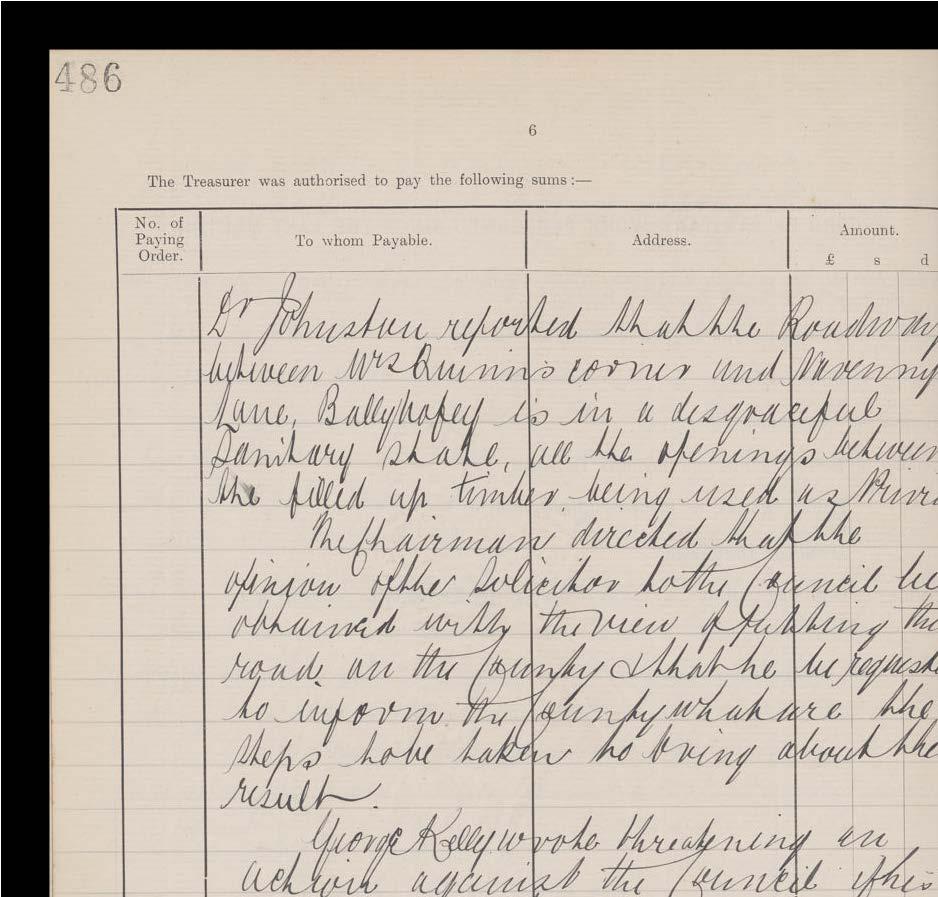 486
6
The Treasurer was authorised to pay the following sums :—
No. of
Paying
Order.
To whom Payable.
Address.
Amount.
£ s d
Dr Johnston reported that the Roadway
between Mrs Quinn's corner and Navenny
Lane, Ballybofey is in a disgraceful
Sanitary state, all the openings between
the filled up timber being used as
The Chairman directed that the
opinion of the Solicitor to the Council be
obtained with the view of putting the
road on the County & that he be requeste
to inform the County what are the
steps to be taken to bring about the
result.
George Kelly wrote threatening an
action against the Council if his